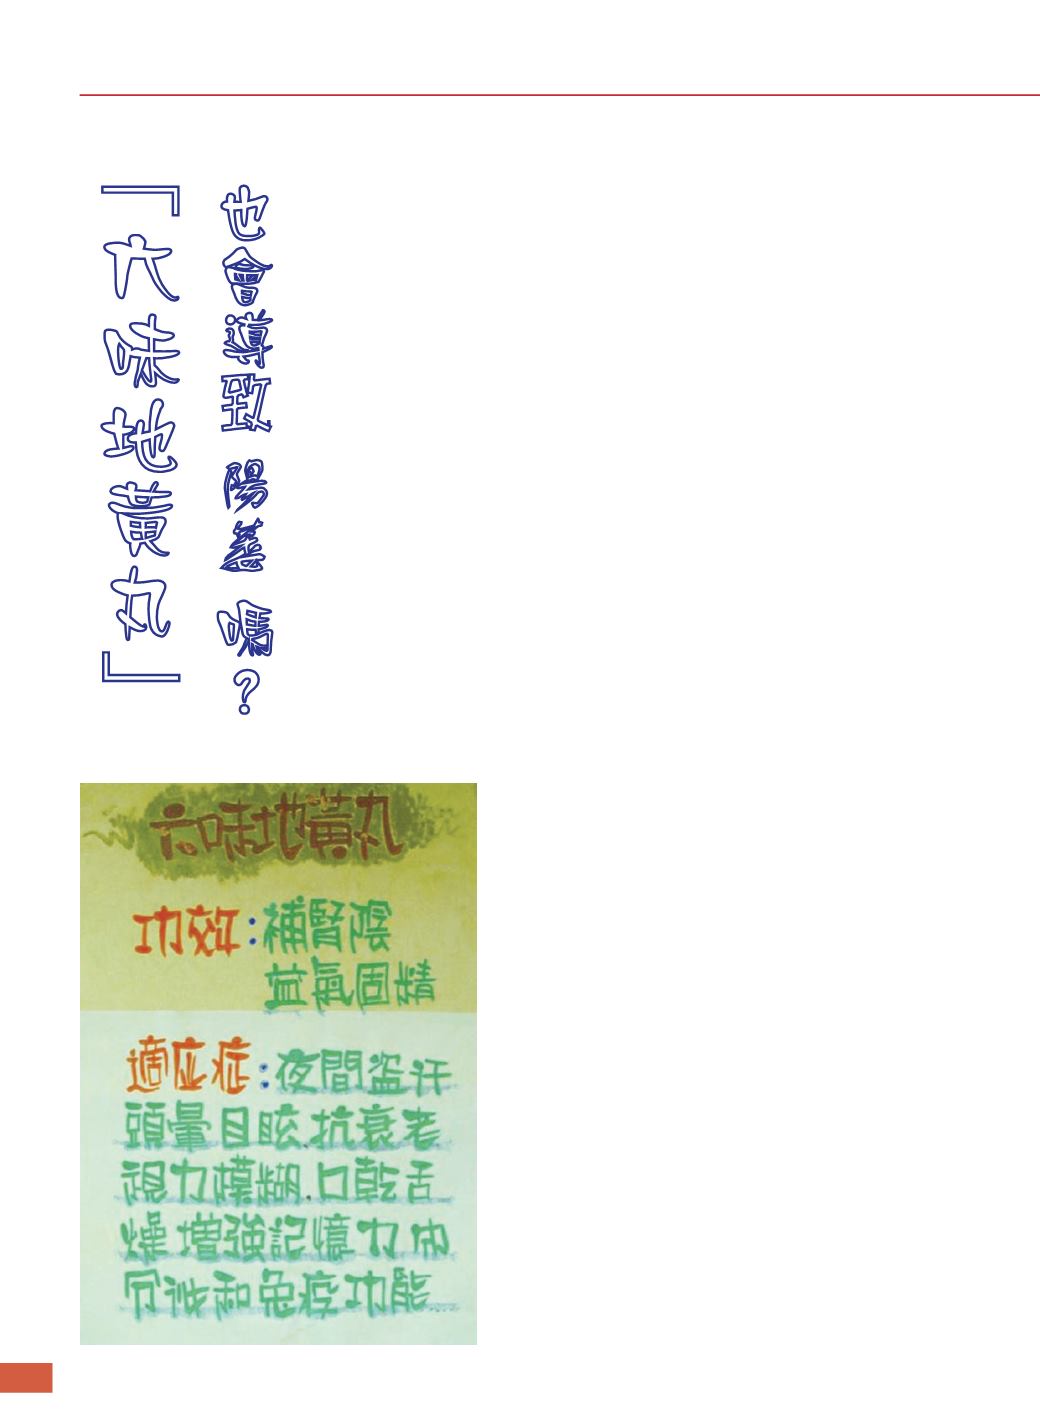 「六味地黃丸」
也會導致 陽萎 嗎?
六味地黃丸
功效:補腎陰
益氣固精
適应症:夜間盗汗
頭暈目眩.抗衰老
視力模糊.口乾舌
燥 增強記憶力 內
分泌和免疫功能....